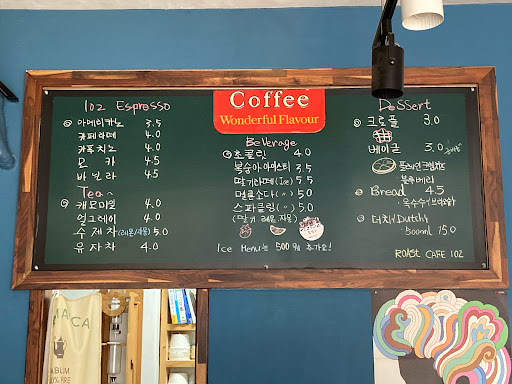 Coffee
Wonderful Flavour
102 Espresso
아메리카노 3.5
카페라떼 4.0
카푸치노 4.0
모카 4.5
바닐라 4.5
Tea
캐모마일 4.0
얼그레이 4.0
수제차(레몬/자몽) 5.0
유자차 4.0
Beverage
초콜릿 4.0
복숭아 아이스티 3.5
딸기라떼(Ice) 5.5
멜론소다(〃) 5.0
스파클링(〃) 5.0
(딸기 레몬, 자몽)
Ice Menu는 500원 추가요!
Dessert
크로플 3.0
베이글 3.0
플레인크림치즈
블루베리
Bread 4.5
더치/Dutch
500ml 15.0
ROAST CAFE 102